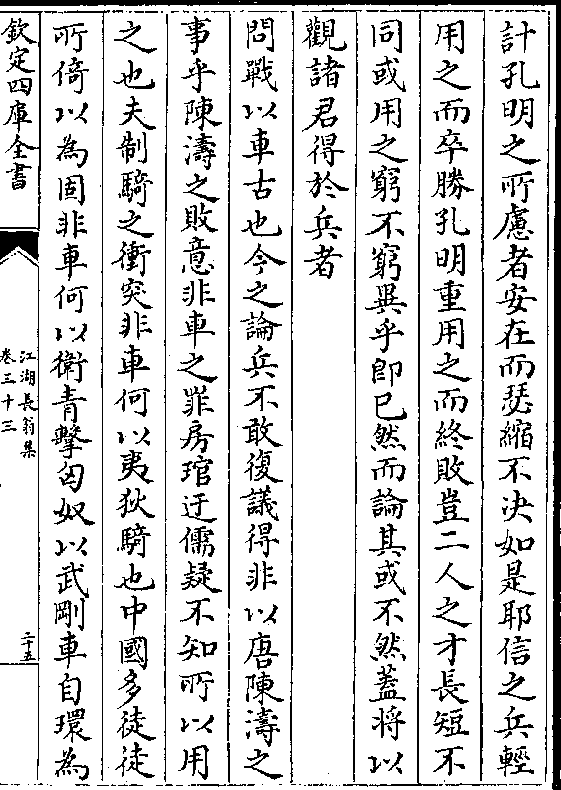 計孔明之所慮者安在而瑟縮不决如是耶信之兵輕
用之而卒勝孔明重用之而終敗豈二人之才長短不
同或用之窮不窮異乎卽已然而論其或不然蓋將以
觀諸君得於兵者
問戰以車古也今之論兵不敢復議得非以唐陳濤之
事乎陳濤之敗意非車之罪房琯迂儒疑不知所以用
之也夫制騎之衝突非車何以夷狄騎也中國多徒徒
所倚以為固非車何以衛青擊匈奴以武剛車自環為
欽定四庫全書
江湖長翁集
卷三十三
二十五